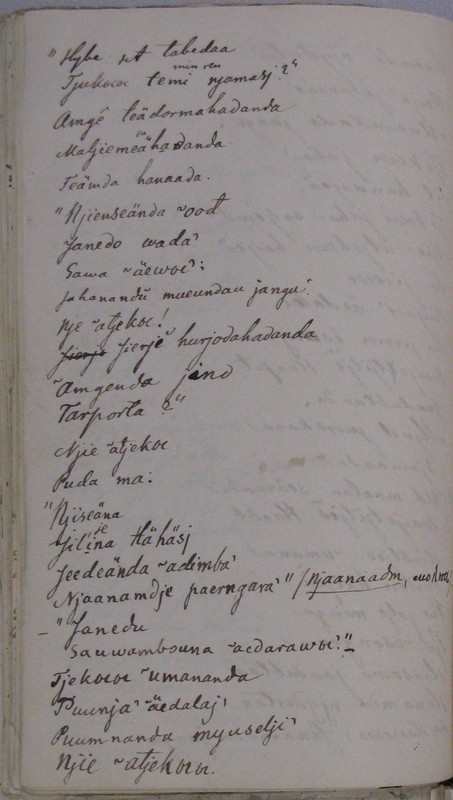 "Hybe sit tabedaa
Tjukocσ temi njamasj?"
min ren
Amgē teādormahadanda
Maljiemeāhadanda
Teāmda hanaada.
"Njienseānda ~ood
Janedo wada'
Sawa ~āewoc':
Jahanandū mueundau jangu'.
nje ~atjekoc!
Jierje hurjodahadanda
~Amgenda jind
Tarporta?"
Njie ~atjekoc
Puda ma:
"Njiseāna
Jilina Hāhāsj
je
Jeedeānda ~adimba'
Njaanamdje paerngara'" (Njaanaadm,
– "Janedu
Sauwambouna ~aedarawoc!"
Tjekococ ~umananda
Puunja' ~āedalaj'
Puumnanda myuselji'
Njie ~atjekococ.